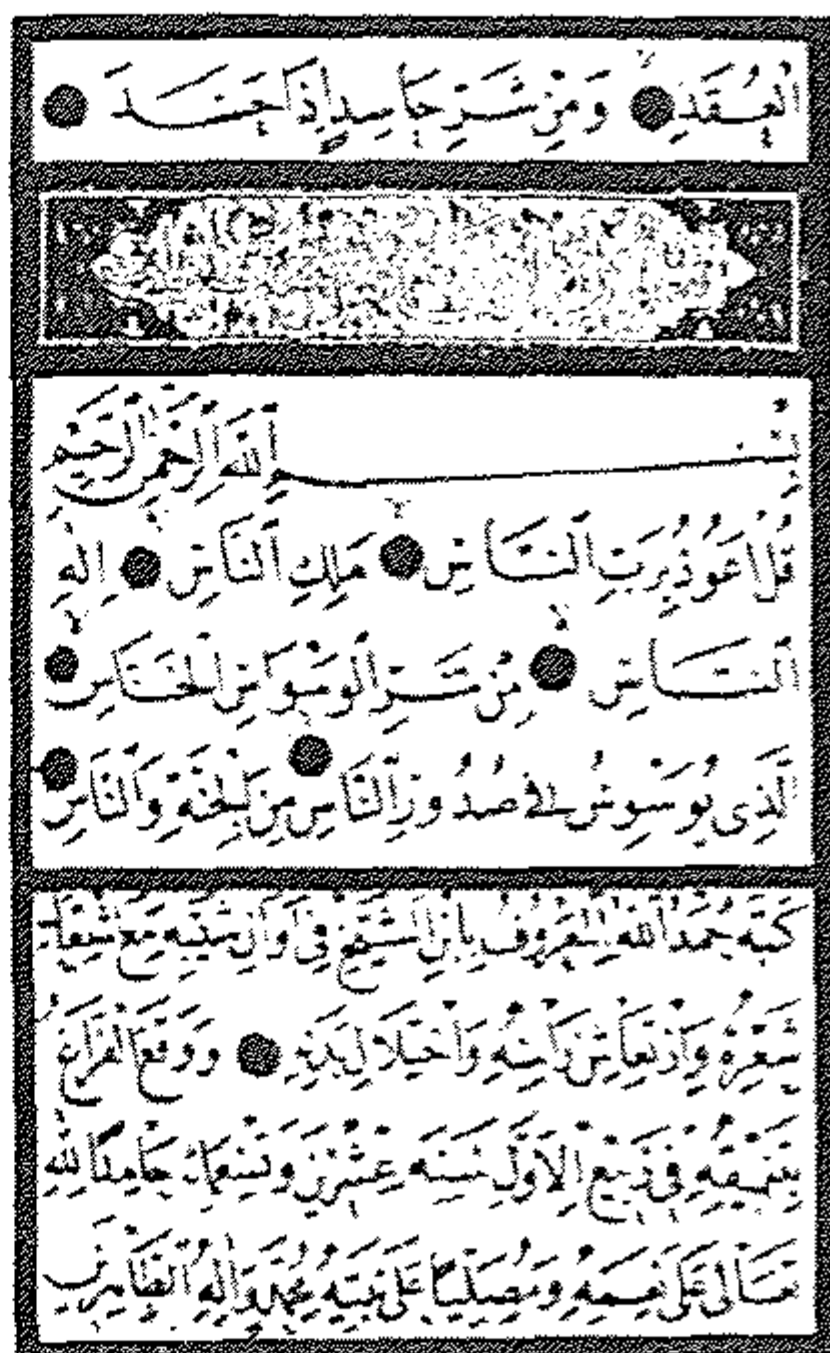 الْعُقَدِ وَمِنْ شَرِّ حَاسِدٍ إِذَا حَسَدَ
بِسْمِ اللَّهِ الرَّحْمٰنِ الرَّحِيمِ
قُلْ اَعُوذُ بِرَبِّ النَّاسِ مَلِكِ النَّاسِ اِلٰهِ
النَّاسِ مِنْ شَرِّ الْوَسْوَاسِ الْخَنَّاسِ
الَّذِى يُوَسْوِسُ فِى صُدُورِ النَّاسِ مِنَ الْجِنَّةِ وَالنَّاسِ
كَتَبَهُ حَمْدُ اللهِ الْمَعْرُوفُ بِابْنِ الشَّيْخِ فِى اَوَانِ شَيْبِهِ مَعَ
شَعْرِهِ وَارْتِعَاشِ رَاْسِهِ وَاخْتِلَالِ بَدَنِهِ وَوَقَعَ الْفَرَاغُ
بِتَنْمِيقِهِ فِى رَبِيعِ الْاَوَّلِ سَنَةَ عِشْرِينَ وَتِسْعِمِائَة حَامِدًا لِلّٰهِ
تَعَالَى عَلَى نِعَمِهِ وَمُصَلِّيًا عَلَى نَبِيِّهِ مُحَمَّدٍ وَاٰلِهِ الطَّاهِرِينَ